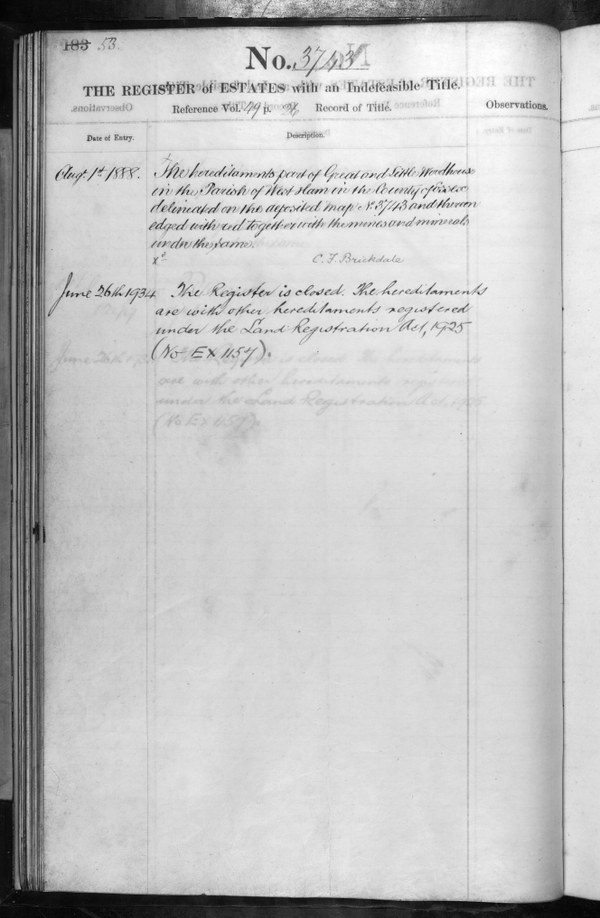 183 53
No. 3743
THE REGISTER of ESTATES with an Indefeasible Title.
Reference Vol. 49 p. Record of Title.
Observations.
Date of Entry.
Description.
Augt 1st 1888.
The hereditaments part of Great and Little Woodhouse
in the Parish of West Ham in the County of Essex
delineated on the deposited map No. 3743 and thereon
edged with red together with the mines and minerals
under the same.
C. F. Brickdale
June 26th 1934
The Register is closed. The hereditaments
are with other hereditaments registered
under the Land Registration Act, 1925
(No Ex 1157).